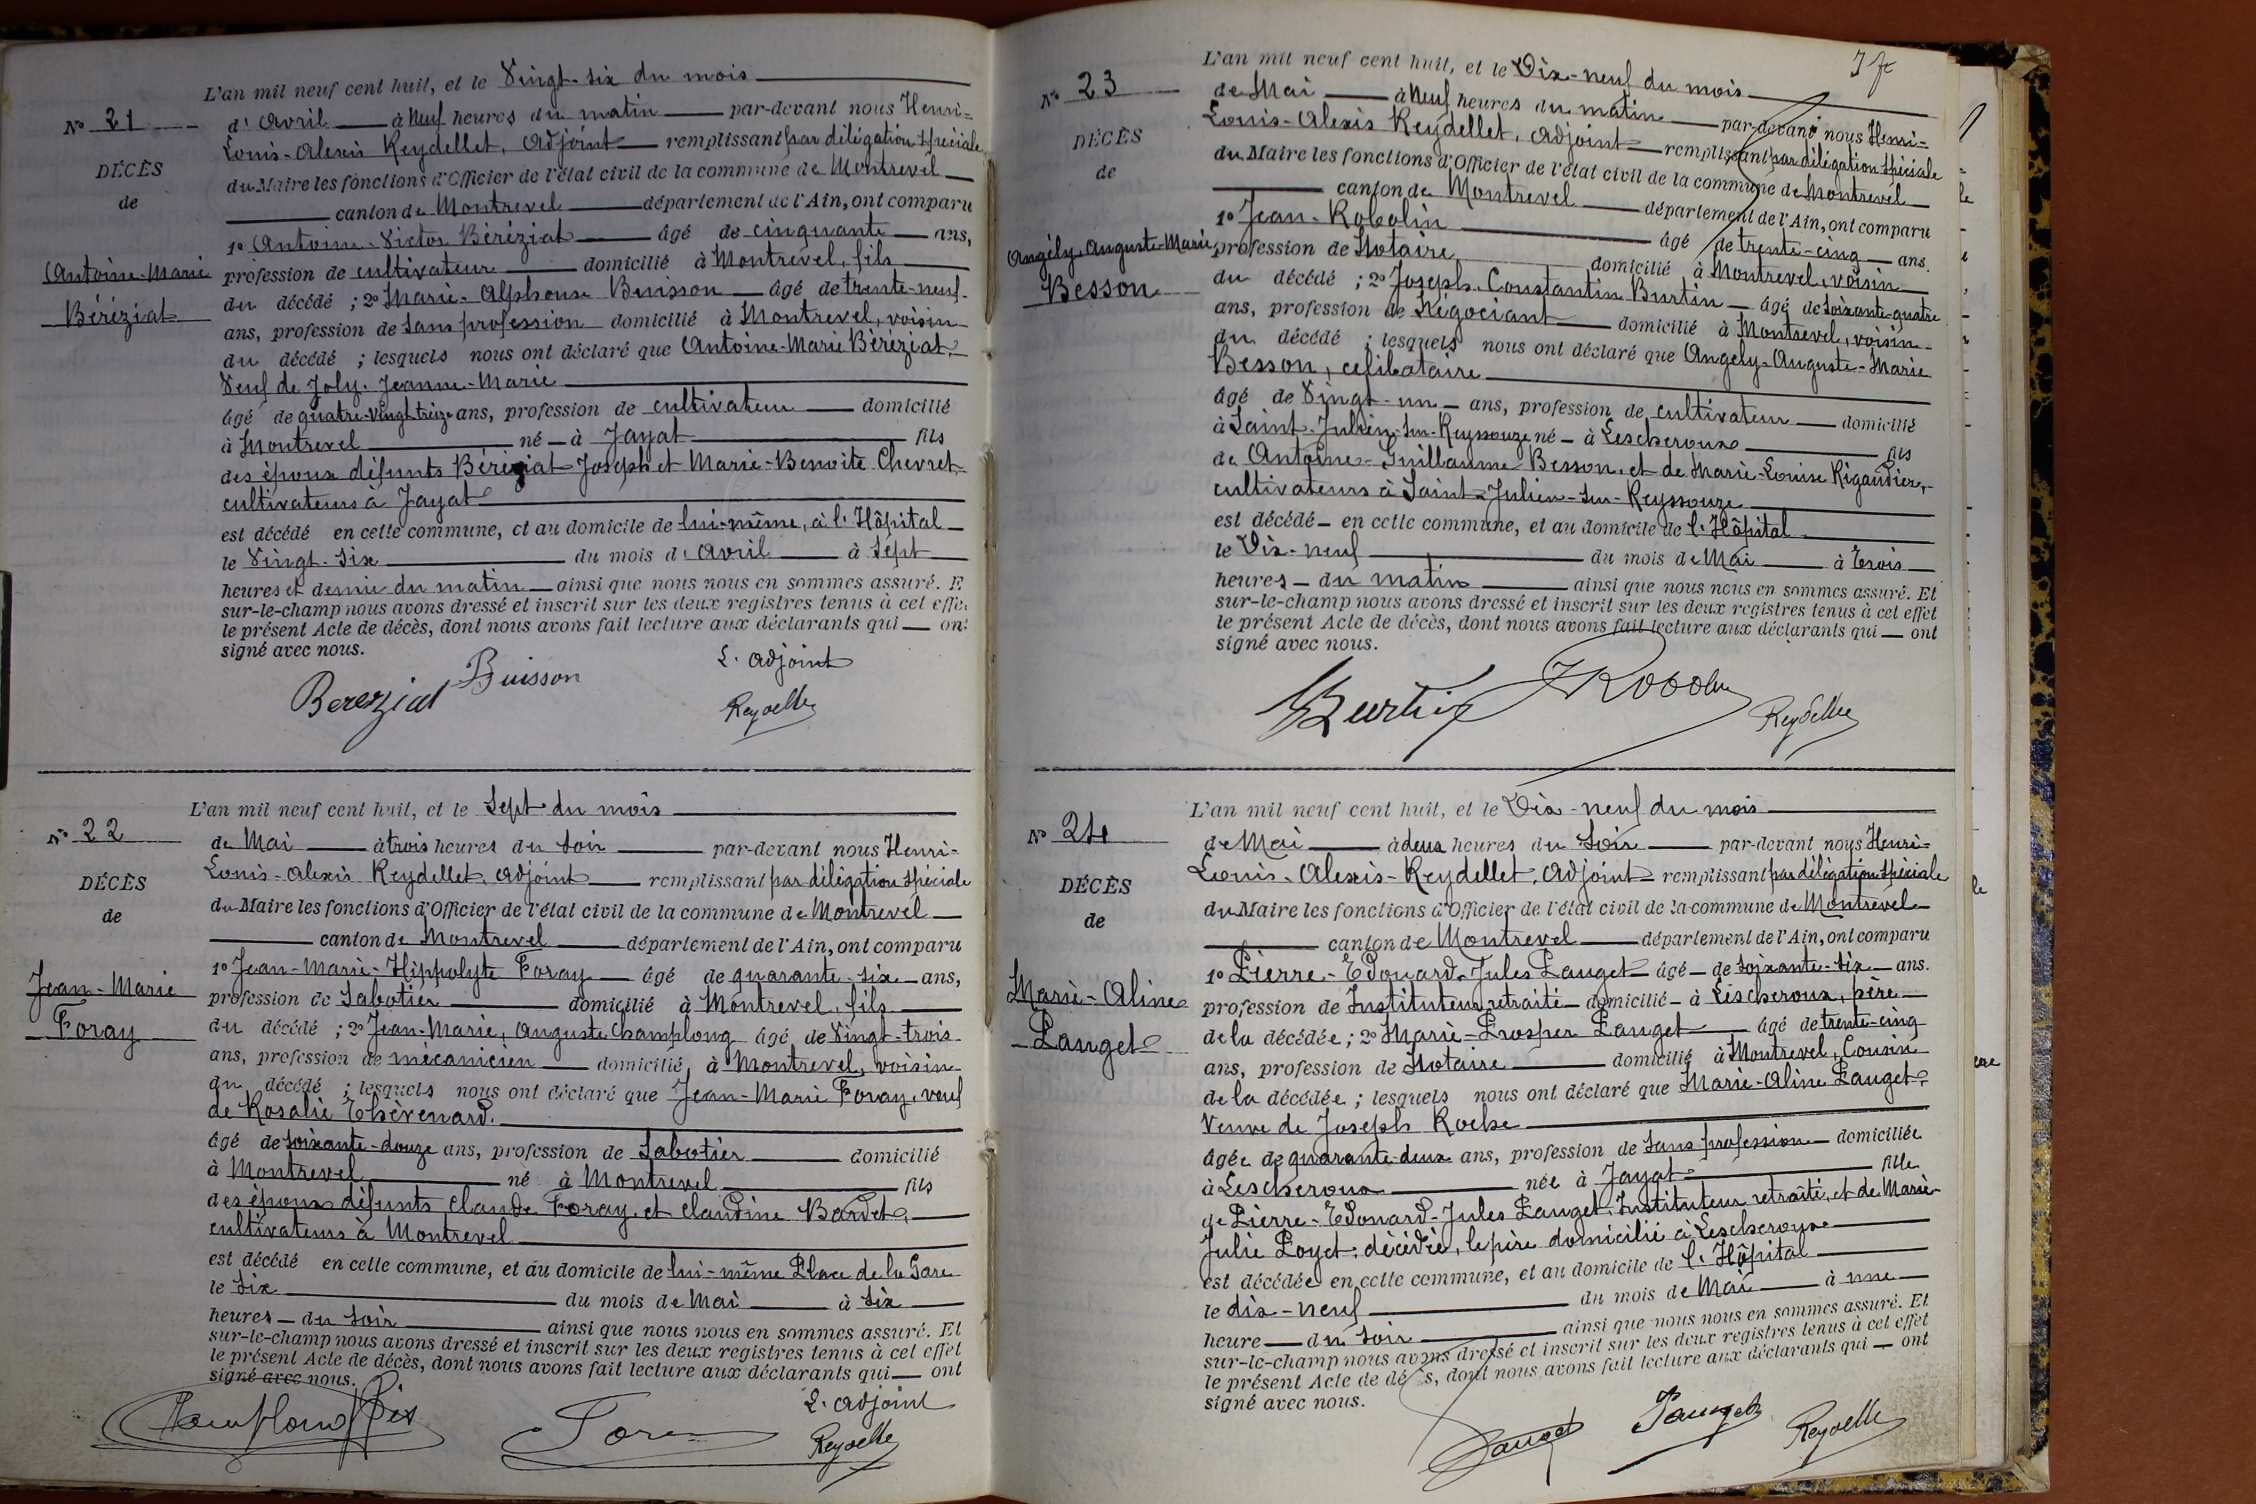 L'an mil neuf cent huit, et le Vingt-six du mois
N° 21
d'Avril à Neuf heures du matin par-devant nous Henri-
Louis-Alexis Reydellet, Adjoint remplissant par délégation spéciale
DÉCÈS
du Maire les fonctions d'Officier de l'état civil de la commune de Montrevel
de
canton de Montrevel département de l'Ain, ont comparu
1° Antoine-Victor Béréziat âgé de cinquante ans,
Antoine-Marie
profession de cultivateur domicilié à Montrevel, fils
Béréziat
du décédé ; 2° Marie-Alphonse Buisson âgé de trente-neuf
ans, profession de sans profession domicilié à Montrevel, voisin
du décédé ; lesquels nous ont déclaré que Antoine-Marie Béréziat,
Veuf de Joly Jeanne-Marie
âgé de quatre-vingt-treize ans, profession de cultivateur domicilié
à Montrevel né à Jayat fils
des époux défunts Béréziat Joseph et Marie-Benoite Chevret
cultivateurs à Jayat
est décédé en cette commune, et au domicile de lui-même, à l'Hôpital
le Vingt-six du mois d'Avril à sept
heures et demie du matin ainsi que nous nous en sommes assuré. E
sur-le-champ nous avons dressé et inscrit sur les deux registres tenus à cet effe
le présent Acte de décès, dont nous avons fait lecture aux déclarants qui ont
signé avec nous.
L'adjoint
Bereziat Buisson Reydellet
L'an mil neuf cent huit, et le Sept du mois
N° 22
de Mai à trois heures du soir par-devant nous Henri-
Louis-Alexis Reydellet, Adjoint remplissant par délégation spéciale
DÉCÈS
du Maire les fonctions d'Officier de l'état civil de la commune de Montrevel
de
canton de Montrevel département de l'Ain, ont comparu
1° Jean-Marie-Hippolyte Foray âgé de quarante-six ans,
Jean-Marie
profession de Sabotier domicilié à Montrevel, fils
Foray
du décédé ; 2° Jean-Marie, Auguste Champlong âgé de Vingt-trois
ans, profession de mécanicien domicilié à Montrevel, voisin
du décédé ; lesquels nous ont déclaré que Jean-Marie Foray, veuf
de Rosalie Thévenard.
âgé de soixante-douze ans, profession de Sabotier domicilié
à Montrevel né à Montrevel fils
des époux défunts Claude Foray et Claudine Bardet,
cultivateurs à Montrevel
est décédé en cette commune, et au domicile de lui-même Place de la Gare
le six du mois de Mai à six
heures du soir ainsi que nous nous en sommes assuré. Et
sur-le-champ nous avons dressé et inscrit sur les deux registres tenus à cet effet
le présent Acte de décès, dont nous avons fait lecture aux déclarants qui ont
signé avec nous.
L'adjoint
Reydellet
37
L'an mil neuf cent huit, et le Dix-neuf du mois
N° 23
de Mai à Neuf heures du matin par-devant nous Henri-
Louis-Alexis Reydellet, Adjoint remplissant par délégation spéciale
DÉCÈS
du Maire les fonctions d'Officier de l'état civil de la commune de Montrevel
de
canton de Montrevel département de l'Ain, ont comparu
1° Jean-Robolin âgé de trente-cinq ans.
Angély-Auguste-Marie
profession de Notaire domicilié à Montrevel, voisin
Besson
du décédé ; 2° Joseph-Constantin Burtin âgé de soixante-quatre
ans, profession de Négociant domicilié à Montrevel, voisin
du décédé ; lesquels nous ont déclaré que Angely-Auguste-Marie
Besson, célibataire
âgé de Vingt-un ans, profession de cultivateur domicilié
à Saint-Julien-sur-Reyssouze né à Lescheroux fils
de Antoine-Guillaume Besson, et de Marie-Louise Rigaudier,
cultivateurs à Saint-Julien-sur-Reyssouze
est décédé en cette commune, et au domicile de l'Hôpital
le Dix-neuf du mois de Mai à trois
heures du matin ainsi que nous nous en sommes assuré. Et
sur-le-champ nous avons dressé et inscrit sur les deux registres tenus à cet effet
le présent Acte de décès, dont nous avons fait lecture aux déclarants qui ont
signé avec nous.
Burtin JRobolin Reydellet
L'an mil neuf cent huit, et le Dix-neuf du mois
N° 24
de Mai à deux heures du soir par-devant nous Henri-
Louis-Alexis-Reydellet, Adjoint remplissant par délégation spéciale
DÉCÈS
du Maire les fonctions d'Officier de l'état civil de la commune de Montrevel
de
canton de Montrevel département de l'Ain, ont comparu
1° Pierre-Edouard-Jules Pauget âgé de soixante-six ans.
Marie-Aline
profession de Instituteur retraité domicilié à Lescheroux, père
Pauget
de la décédée ; 2° Marie-Prosper Pauget âgé de trente-cinq
ans, profession de Notaire domicilié à Montrevel, Cousin
de la décédée ; lesquels nous ont déclaré que Marie-Aline Pauget,
Veuve de Joseph Roche
âgée de quarante-deux ans, profession de sans profession domiciliée
à Lescheroux née à Jayat fille
de Pierre-Edouard-Jules Pauget, Instituteur retraité, et de Marie-
Julie Poyet, décédée, le père domicilié à Lescheroux
est décédée en cette commune, et au domicile de l'Hôpital
le dix-neuf du mois de Mai à une
heure du soir ainsi que nous nous en sommes assuré. Et
sur-le-champ nous avons dressé et inscrit sur les deux registres tenus à cet effet
le présent Acte de décès, dont nous avons fait lecture aux déclarants qui ont
signé avec nous.
Pauget Pauget Reydellet